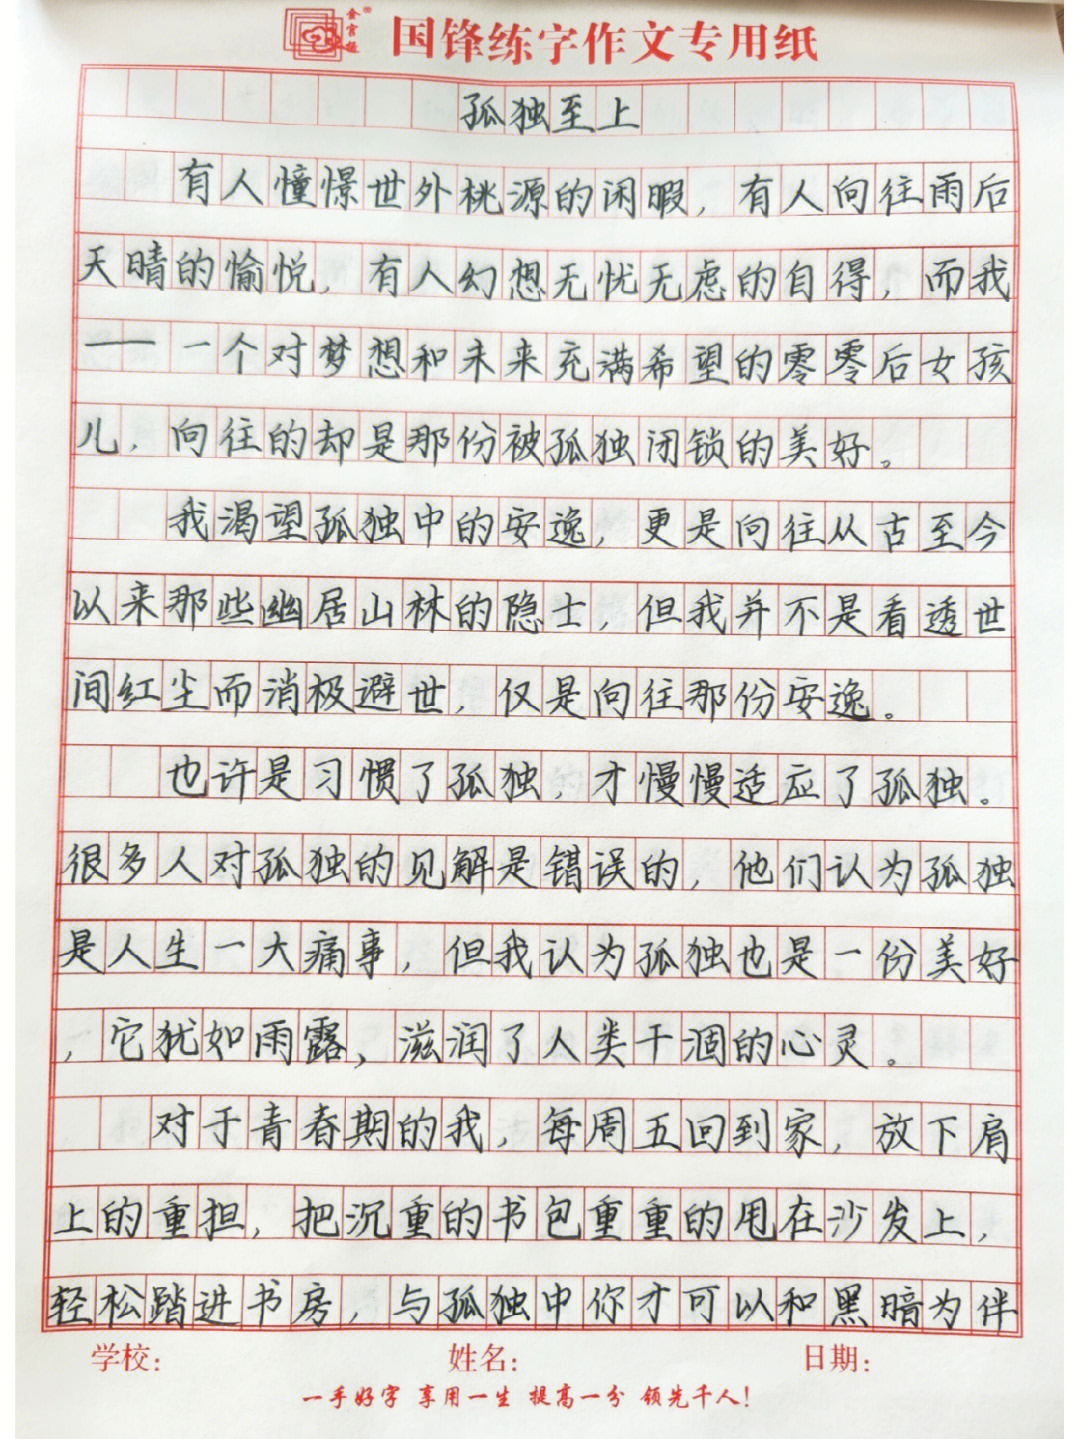 金言趣
国锋练字作文专用纸
孤独至上
有人憧憬世外桃源的闲暇，有人向往雨后
天晴的愉悦，有人幻想无忧无虑的自得，而我
——一个对梦想和未来充满希望的零零后女孩
儿，向往的却是那份被孤独闭锁的美好。
我渴望孤独中的安逸，更是向往从古至今
以来那些幽居山林的隐士，但我并不是看透世
间红尘而消极避世，仅是向往那份安逸。
也许是习惯了孤独，才慢慢适应了孤独。
很多人对孤独的见解是错误的，他们认为孤独
是人生一大痛事，但我认为孤独也是一份美好
，它犹如雨露，滋润了人类干涸的心灵。
对于青春期的我，每周五回到家，放下肩
上的重担，把沉重的书包重重的甩在沙发上，
轻松踏进书房，与孤独中你才可以和黑暗为伴
学校： 姓名： 日期：
一手好字 享用一生 提高一分 领先千人！